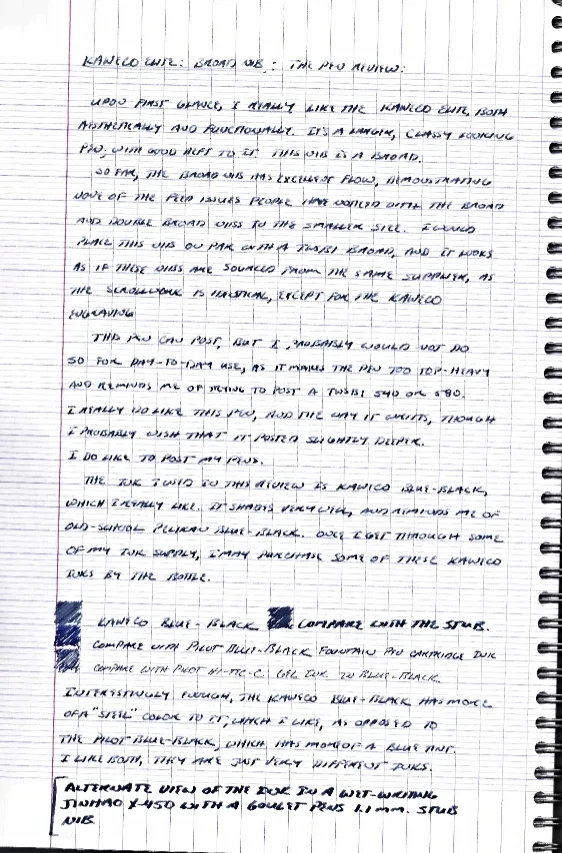 KAWECO ELITE: BROAD NIB: THE PEN REVIEW:
UPON FIRST GLANCE, I REALLY LIKE THE KAWECO ELITE, BOTH
AESTHETICALLY AND FUNCTIONALLY. IT'S A LARGER, CLASSY LOOKING
PEN, WITH GOOD HEFT TO IT. THIS NIB IS A BROAD.
SO FAR, THE BROAD NIB HAS EXCELLENT FLOW, DEMONSTRATING
NONE OF THE FEED ISSUES PEOPLE HAVE NOTICED WITH THE BROAD
AND DOUBLE BROAD NIBS IN THE SMALLER SIZE. I WOULD
PLACE THIS NIB ON PAR WITH A TWSBI BROAD, AND IT LOOKS
AS IF THESE NIBS ARE SOURCED FROM THE SAME SUPPLIER, AS
THE SCROLLWORK IS IDENTICAL, EXCEPT FOR THE KAWECO
ENGRAVING
THIS PEN CAN POST, BUT I PROBABLY WOULD NOT DO
SO FOR DAY-TO-DAY USE, AS IT MAKES THE PEN TOO TOP-HEAVY
AND REMINDS ME OF TRYING TO POST A TWSBI 540 OR 580.
I REALLY DO LIKE THIS PEN, AND THE WAY IT WRITES, THOUGH
I PROBABLY WISH THAT IT POSTED SLIGHTLY DEEPER.
I DO LIKE TO POST MY PENS.
THE INK I USED IN THIS REVIEW IS KAWECO BLUE-BLACK,
WHICH I REALLY LIKE. IT SHADES VERY WELL, AND REMINDS ME OF
OLD-SCHOOL PELIKAN BLUE-BLACK. ONCE I GET THROUGH SOME
OF MY INK SUPPLY, I MAY PURCHASE SOME OF THESE KAWECO
INKS BY THE BOTTLE.
KAWECO BLUE-BLACK COMPARE WITH THE STUB.
COMPARE WITH PILOT BLUE-BLACK FOUNTAIN PEN CARTRIDGE INK
COMPARE WITH PILOT HI-TEC-C GEL INK IN BLUE-BLACK
INTERESTINGLY ENOUGH, THE KAWECO BLUE-BLACK HAS MORE
OF A "STEEL" COLOR TO IT, WHICH I LIKE, AS OPPOSED TO
THE PILOT BLUE-BLACK, WHICH HAS MORE OF A BLUE TINT.
I LIKE BOTH, THEY ARE JUST VERY DIFFERENT INKS.
ALTERNATE VIEW OF THE INK IN A WET-WRITING
JINHAO X-450 WITH A GOULET PENS 1.1 MM. STUB
NIB